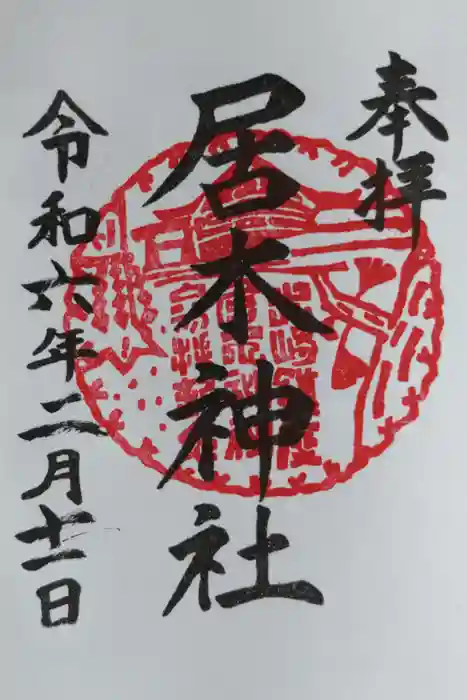 奉拝
居木神社
令和六年二月十一日